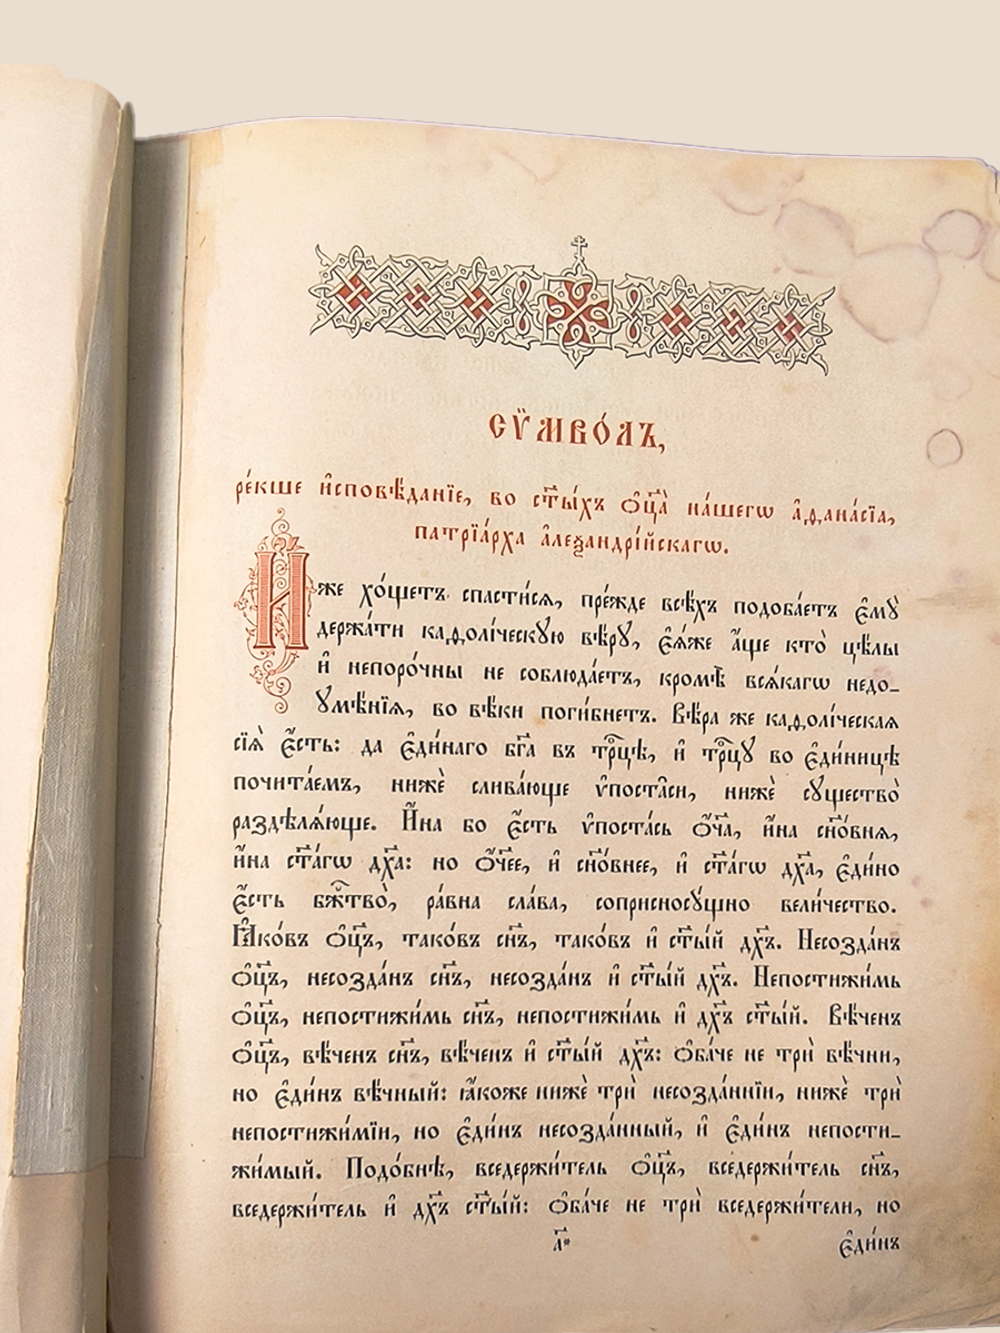 СѴ̈МВО́ЛЪ,
ре́кше и҆сповѣ́данїе, во ст҃ы́хъ ѻ҆ц҃а̀ на́шегѡ а҆ѳана́сїа,
патрїа́рха а҆леѯандрі́йскагѡ.
И҆́же хо́щетъ спасти́сѧ, пре́жде всѣ́хъ подоба́етъ є҆мꙋ̀
держа́ти каѳолі́ческꙋю вѣ́рꙋ, є҆ѧ́же а҆́ще кто̀ цѣ́лы
и҆ непоро́чны не соблюда́етъ, кромѣ̀ всѧ́кагѡ недо_
ꙋмѣ́нїѧ, во вѣ́ки поги́бнетъ. Вѣ́ра же каѳолі́ческаѧ
сїѧ̀ є҆́сть: да є҆ди́наго бг҃а въ трⷪ҇цѣ, и҆ трⷪ҇цꙋ во є҆ди́ницѣ
почита́емъ, нижѐ слива́юще ѵ҆поста̑си, нижѐ сꙋщество̀
раздѣлѧ́юще. И҆́на бо є҆́сть ѵ҆поста́сь ѻ҆́ч҃а, и҆́на сн҃о́внѧ,
и҆́на ст҃а́гѡ дх҃а: но ѻ҆́ч҃ее, и҆ сн҃о́внее, и҆ ст҃а́гѡ дх҃а, є҆ди́но
є҆́сть бж҃тво̀, ра́вна сла́ва, соприсносꙋ́щно вели́чество.
Ꙗ҆ко́въ ѻ҆ц҃ъ, тако́въ сн҃ъ, тако́въ и҆ ст҃ы́й дх҃ъ. Несозда́нъ
ѻ҆ц҃ъ, несозда́нъ сн҃ъ, несозда́нъ и҆ ст҃ы́й дх҃ъ. Непостижи́мь
ѻ҆ц҃ъ, непостижи́мь сн҃ъ, непостижи́мь и҆ дх҃ъ ст҃ы́й. Вѣ́ченъ
ѻ҆ц҃ъ, вѣ́ченъ сн҃ъ, вѣ́ченъ и҆ ст҃ы́й дх҃ъ: ѻ҆ба́че не трѝ вѣ́чни,
но є҆ди́нъ вѣ́чный: ꙗ҆́коже нижѐ трѝ несозда́ннїи, нижѐ трѝ
непостижи́мїи, но є҆ди́нъ несозда́нный, и҆ є҆ди́нъ непости_
жи́мый. Подо́бнѣ, вседержи́тель ѻ҆ц҃ъ, вседержи́тель сн҃ъ,
вседержи́тель и҆ дх҃ъ ст҃ы́й: ѻ҆ба́че не трѝ вседержи́тели, но
а҃* є҆ди́нъ